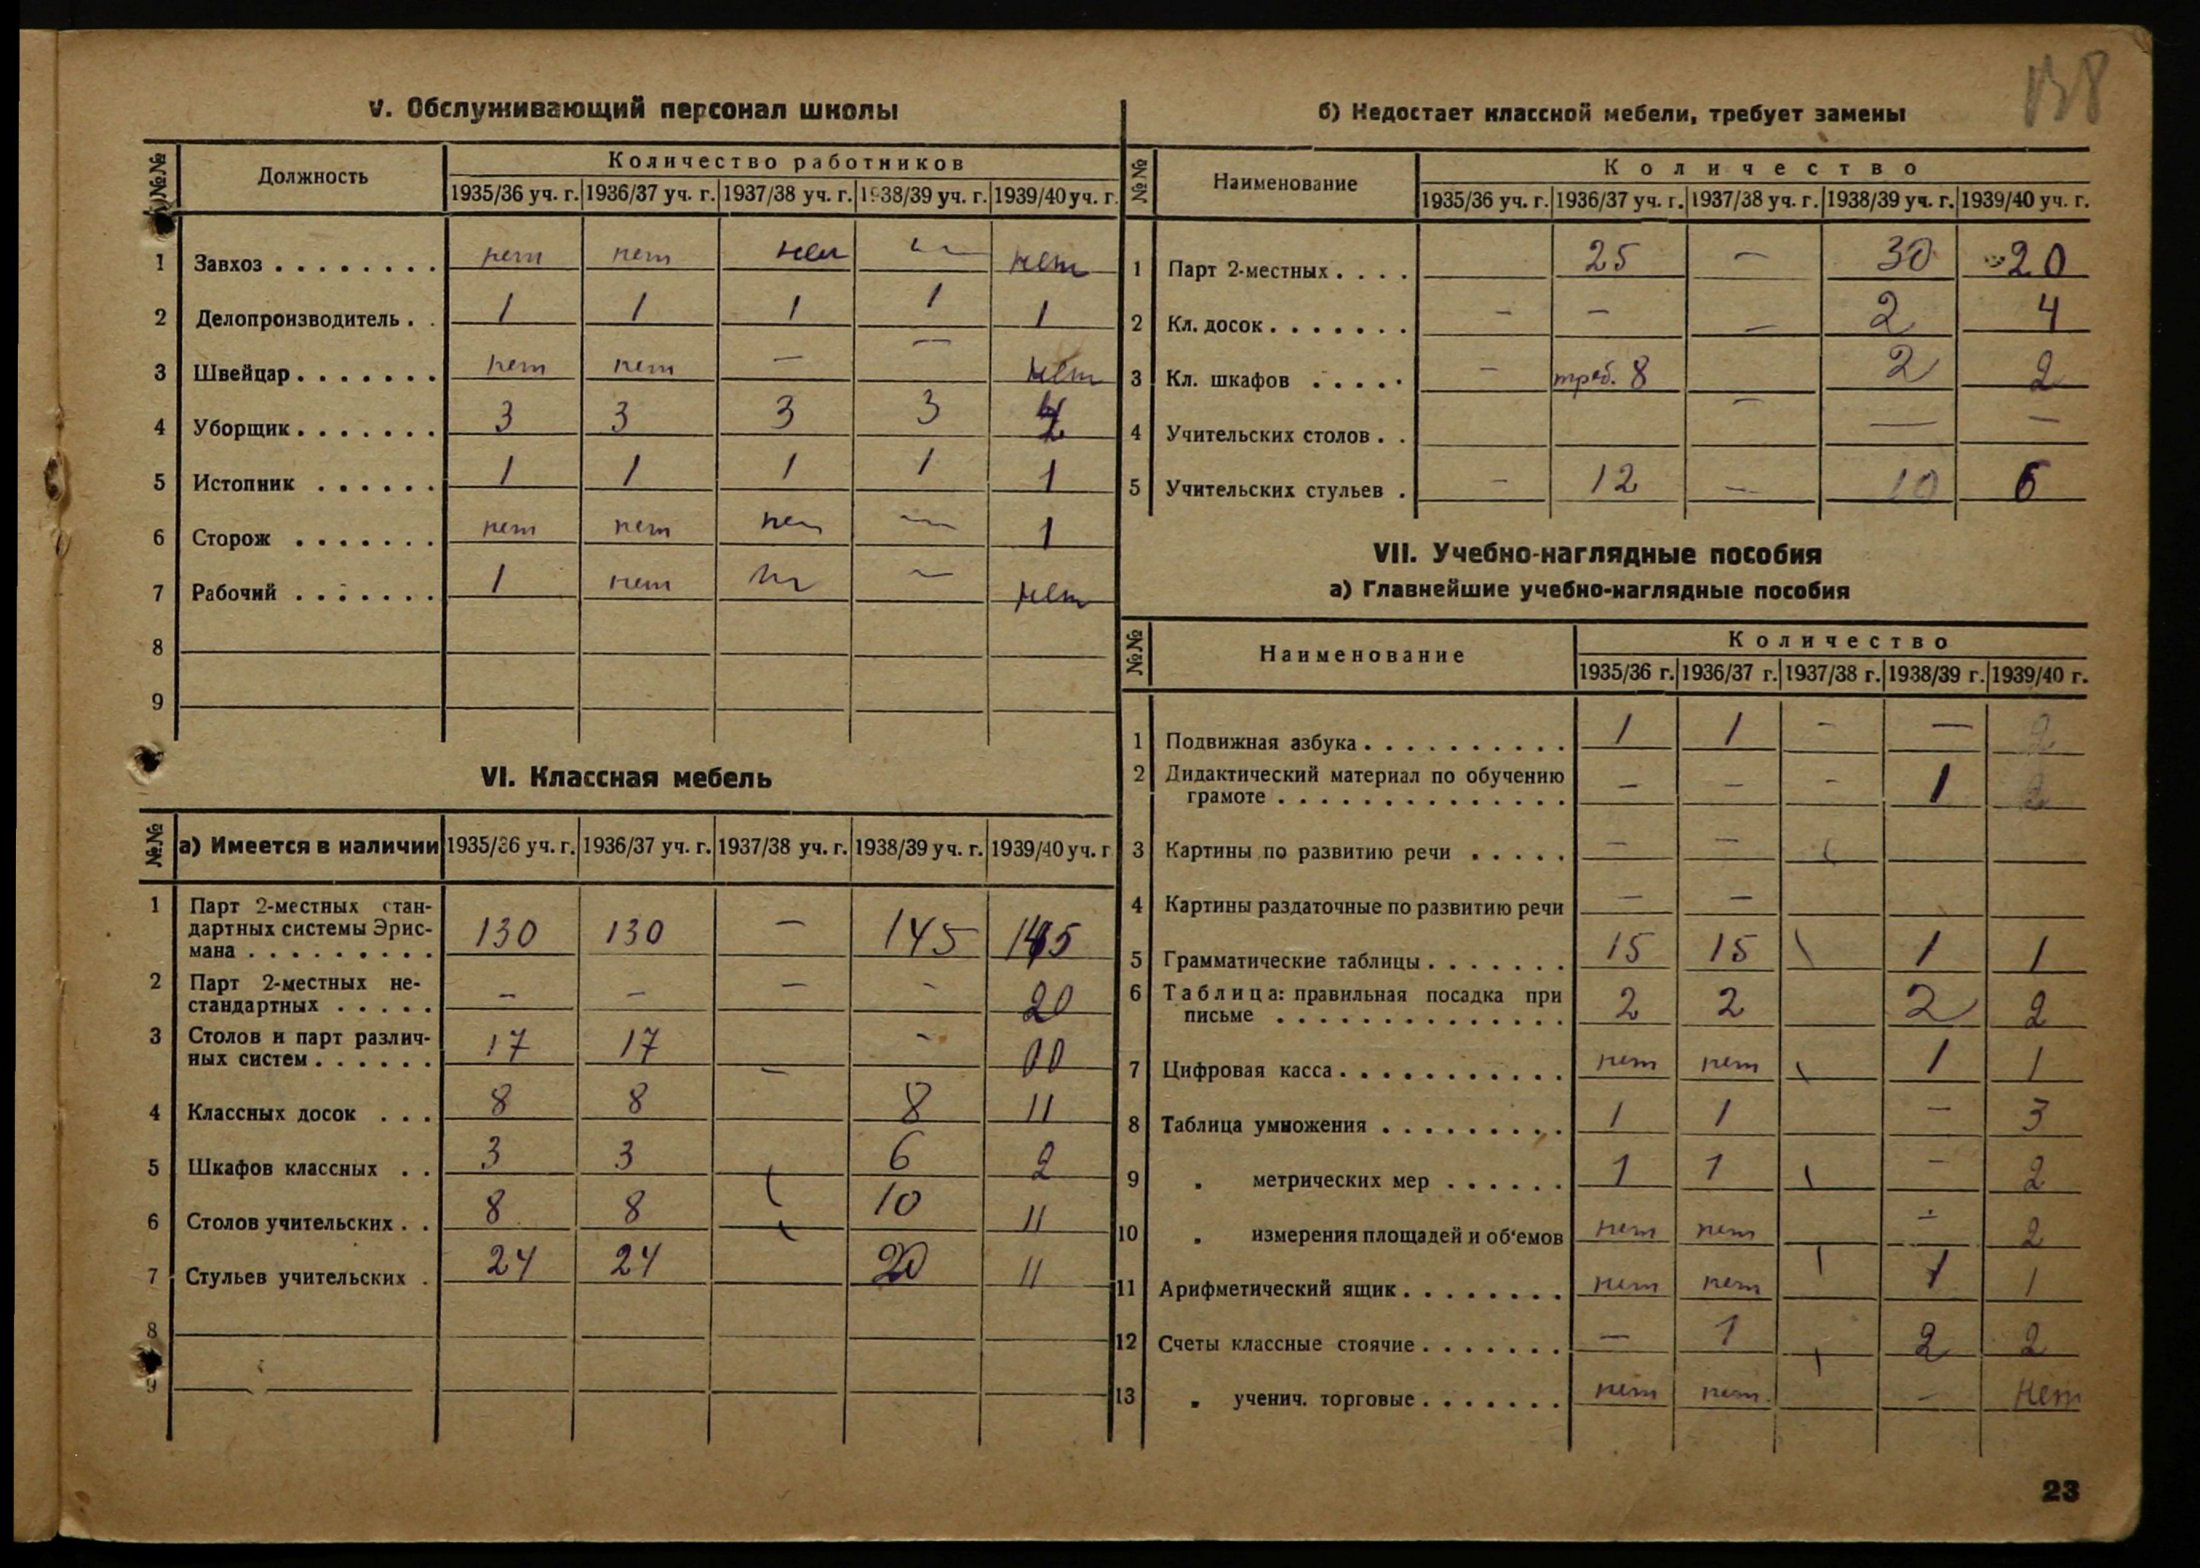 138
V. Обслуживающий персонал школы
№№ Должность Количество работников
1935/36 уч. г. 1936/37 уч. г. 1937/38 уч. г. 1938/39 уч. г. 1939/40 уч. г.
1 Завхоз . . . . . . . . нет нет нет — нет
2 Делопроизводитель . . 1 1 1 1 1
3 Швейцар . . . . . . . нет нет — — нет
4 Уборщик . . . . . . . 3 3 3 3
5 Истопник . . . . . . 1 1 1 1 1
6 Сторож . . . . . . . нет нет нет — 1
7 Рабочий . . . . . . . 1 нет — нет
8
9
VI. Классная мебель
№№ а) Имеется в наличии 1935/36 уч. г. 1936/37 уч. г. 1937/38 уч. г. 1938/39 уч. г. 1939/40 уч. г
1 Парт 2-местных стан-
дартных системы Эрис-
мана . . . . . . . . . 130 130 — 145 145
2 Парт 2-местных не-
стандартных . . . . . — — — - 20
3 Столов и парт различ-
ных систем . . . . . . 17 17 — -
4 Классных досок . . . 8 8 8 11
5 Шкафов классных . . 3 3 6 2
6 Столов учительских . . 8 8 10 11
7 Стульев учительских . 24 24 20 11
8
9
б) Недостает классной мебели, требует замены
№№ Наименование Количество
1935/36 уч. г. 1936/37 уч. г. 1937/38 уч. г. 1938/39 уч. г. 1939/40 уч. г.
1 Парт 2-местных . . . . 25 — 30 20
2 Кл. досок . . . . . . . — — — 2 4
3 Кл. шкафов . . . . . — треб. 8 — 2 2
4 Учительских столов . . — —
5 Учительских стульев . — 12 — 10 6
VII. Учебно-наглядные пособия
а) Главнейшие учебно-наглядные пособия
№№ Наименование Количество
1935/36 г. 1936/37 г. 1937/38 г. 1938/39 г. 1939/40 г.
1 Подвижная азбука . . . . . . . . . . 1 1 - — 2
2 Дидактический материал по обучению
грамоте . . . . . . . . . . . . . . — — - 1 2
3 Картины по развитию речи . . . . . — —
4 Картины раздаточные по развитию речи — —
5 Грамматические таблицы . . . . . . . 15 15 1 1
6 Таблица: правильная посадка при
письме . . . . . . . . . . . . . . 2 2 2 2
7 Цифровая касса . . . . . . . . . . . нет нет 1 1
8 Таблица умножения . . . . . . . . . 1 1 — 3
9 „ метрических мер . . . . . . 1 1 — 2
10 „ измерения площадей и об'емов нет нет — 2
11 Арифметический ящик . . . . . . . . нет нет 1 1
12 Счеты классные стоячие . . . . . . . — 1 2 2
13 „ ученич. торговые . . . . . . . нет нет. — нет
23